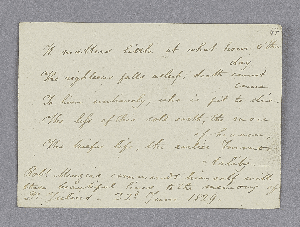 It matters little at what hour o' the
day
The righteous falls asleep, death cannot
come
To him untimely, who is fit to die.
The less of this cold earth, the more
of heaven,
The briefer life, the earlier Immor-
-tality.
himself with
these beautiful lines to the memory of
1829